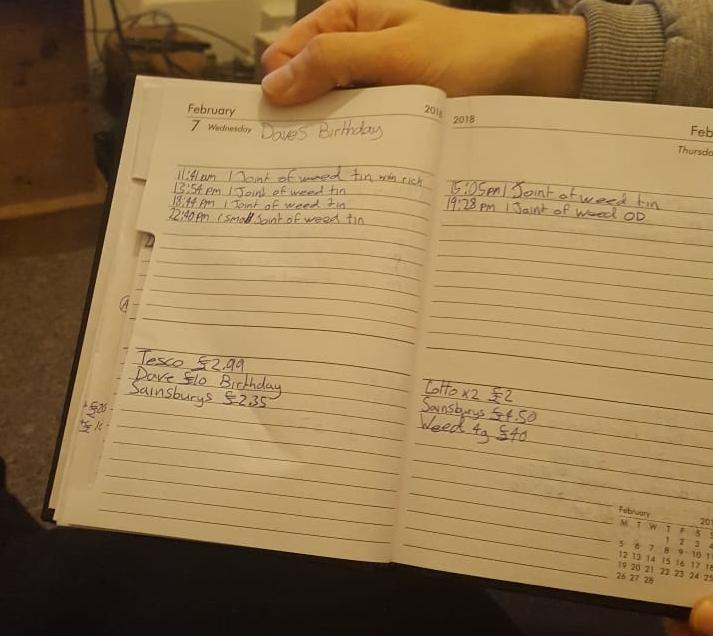 February
2018
7 Wednesday Daves Birthday
11:41 am 1 Joint of weed tin win rich
13:54 pm 1 Joint of weed tin
18:44 pm 1 Joint of weed tin
22:40 pm 1 small Joint of weed tin
Tesco £2.99
Dave £10 Birthday
Sainsburys £2.35
+£20
2018
Feb
Thursd
15:05pm 1 Joint of weed tin
19:28 pm 1 Joint of weed OD
Lotto x2 £2
Sainsburys £4.50
Weed 4g £40
February 201
M T W T F S S
1 2 3 4
5 6 7 8 9 10 11
12 13 14 15 16 17 18
19 20 21 22 23 24 25
26 27 28